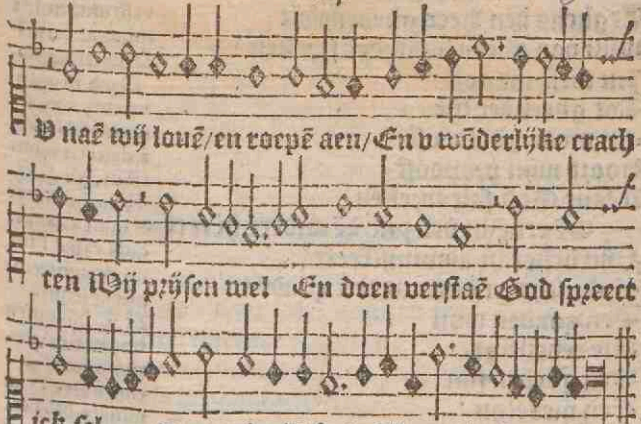 V naē wij louē/en roepē aen/En v wōderlijke crach
ten Wij prijsen wel En doen verstaē God spreect
ick sal